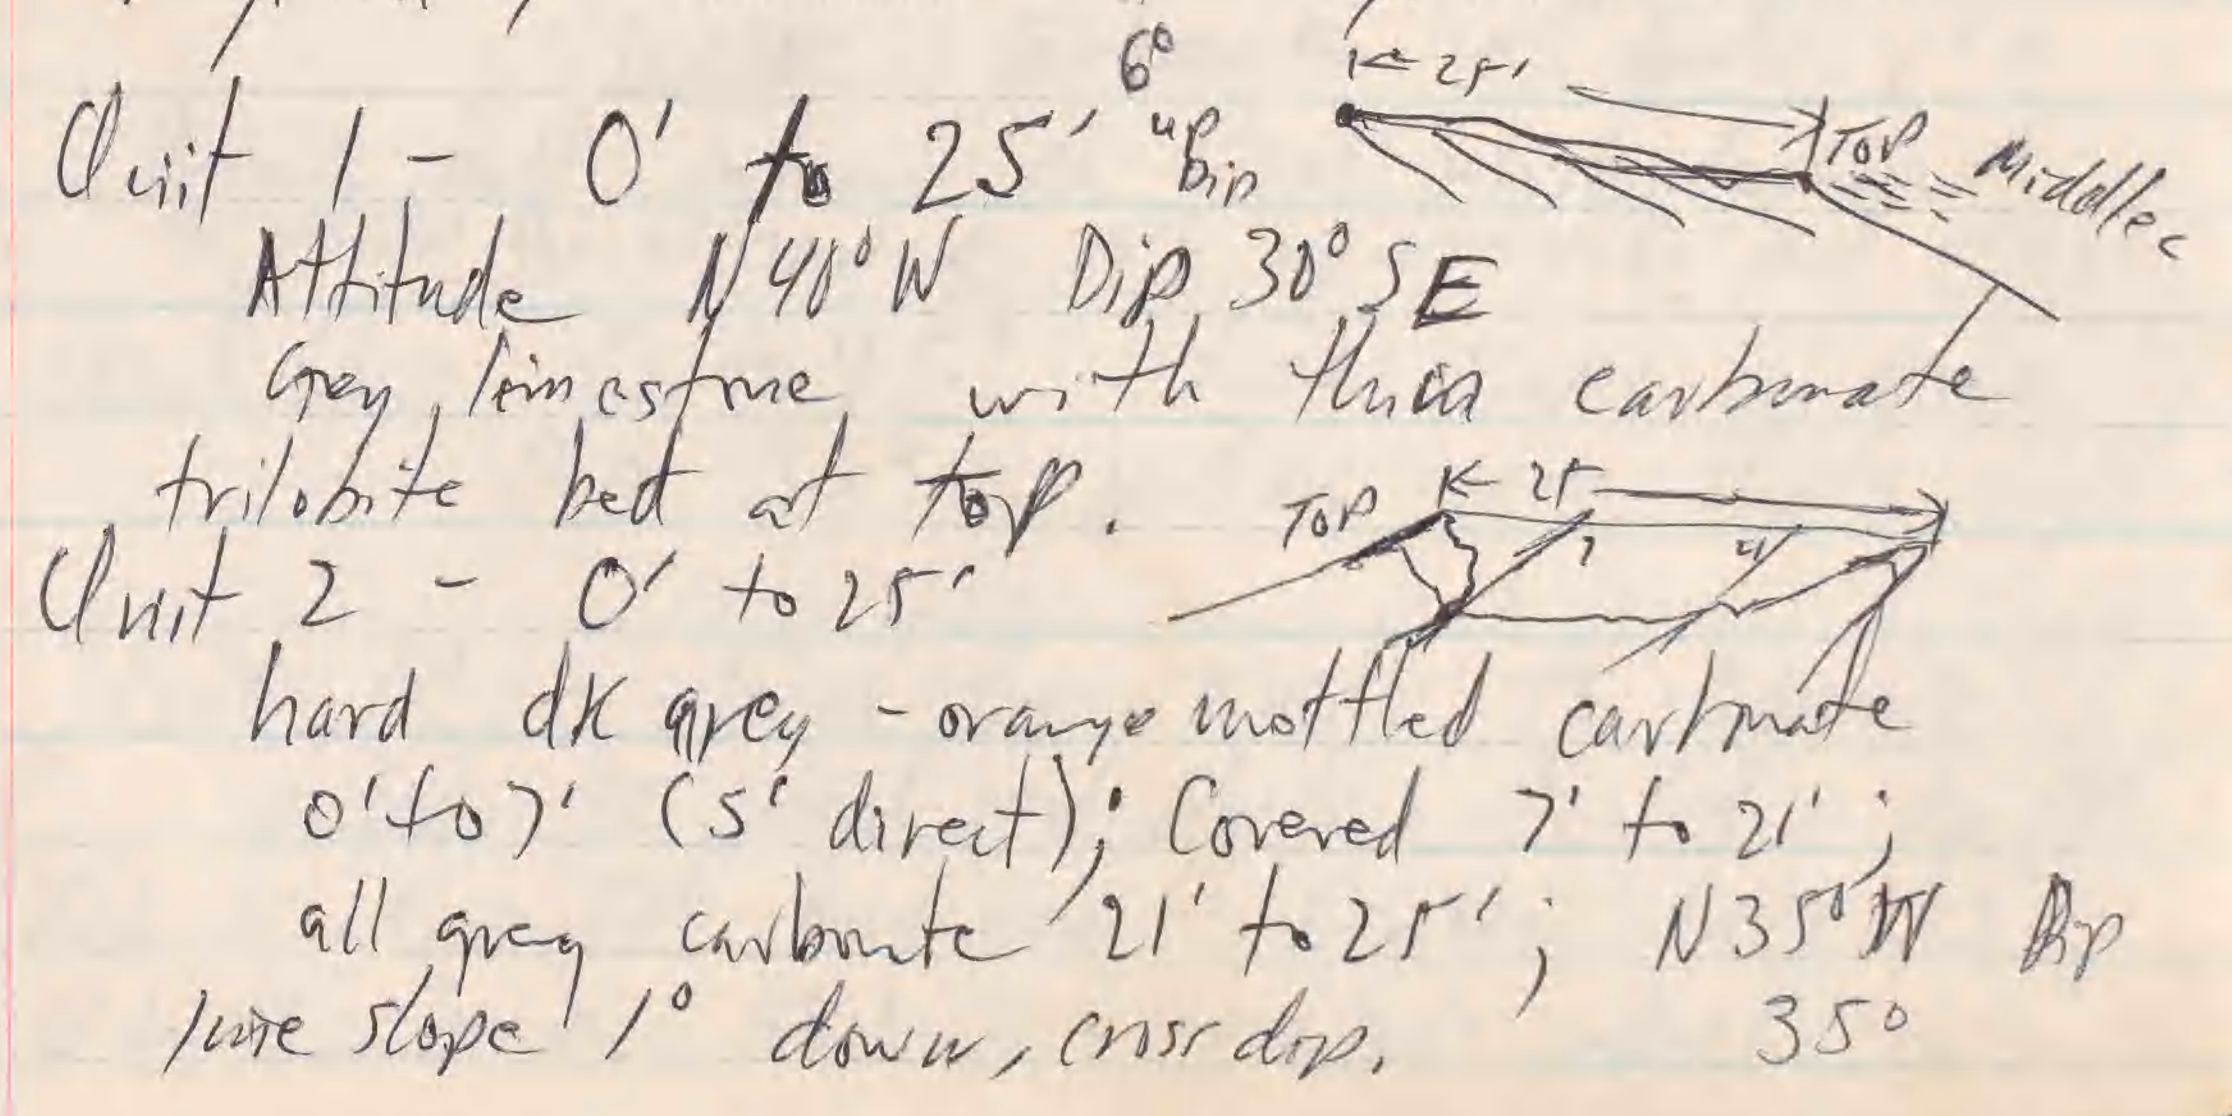 6°
Unit 1 - 0' to 25' up Dip
|← 25' →| TOP Middle C
Attitude N40°W Dip 30° SE
Grey limestone with thin carbonate
trilobite bed at top.
TOP |← 25 →|
7 21
Unit 2 - 0' to 25'
hard dk grey - orange mottled carbonate
0' to 7' (5' direct); Covered 7' to 21';
all grey carbonate 21' to 25'; N35°W Dip
35°
line slope 1° down, cross dip.